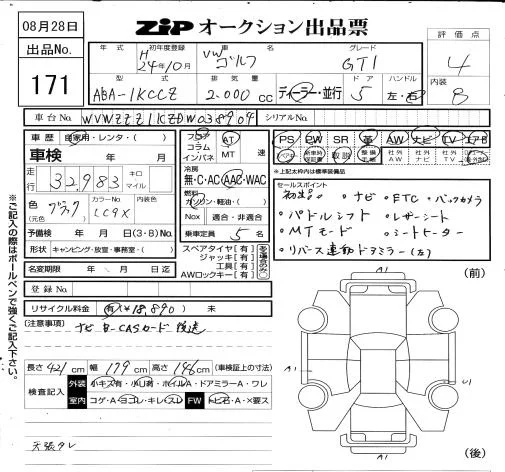 08月28日
ZIP オークション出品票
出品No.
171
年式
初年度登録
H 24年10月
車名
VW ゴルフ
グレード
GTI
評価点
4
内装
8
型式
ABA-1KCCZ
排気量
2.000 cc
ディーラー・並行
ドア
5
ハンドル
左・右
車台No.
シリアルNo.
車歴 自家用・レンタ・( )
車検 年 月
走行 32,983 キロ マイル
色(元色) ブラック
カラーNo. LC9X
内装色
予備検 年 月 日(3・8)No.
形状 キャンピング・放宣・事務室・( )
名変期限 年 月 日迄
登録No.
フロア コラム インパネ
AT MT 速
冷房
無・C・AC・AAC・WAC
燃料
ガソリン・軽油・( )
Nox 適合・非適合
乗車定員 5 名
スペアタイヤ[有]
ジャッキ[有]
工具[有]
AWロックキー[有]
PS PW SR 革 AW ナビ TV エアB
取説
社外AW 社外ナビ 社外TV
*上記太枠内は標準装備品
セールスポイント
・ナビ・ETC・バックカメラ
・パドルシフト・レザーシート
・MTモード・シートヒーター
・リバース連動ドアミラー(左)
リサイクル料金 有(¥18,890) 未
[注意事項] ナビ B-CASカード 後送
長さ 421 cm 幅 179 cm 高さ 146 cm (車検証上の寸法)
検査記入
外装 小キズ有・小凹有・ホイルA・ドアミラーA・ワレ
室内 コゲA・ヨゴレ・キレ・スレ FW トビ石・A・×要ス
天張タレ
※ご記入の際はボールペンで強くご記入下さい。
(前)
A1
A1
U1
A1
(後)